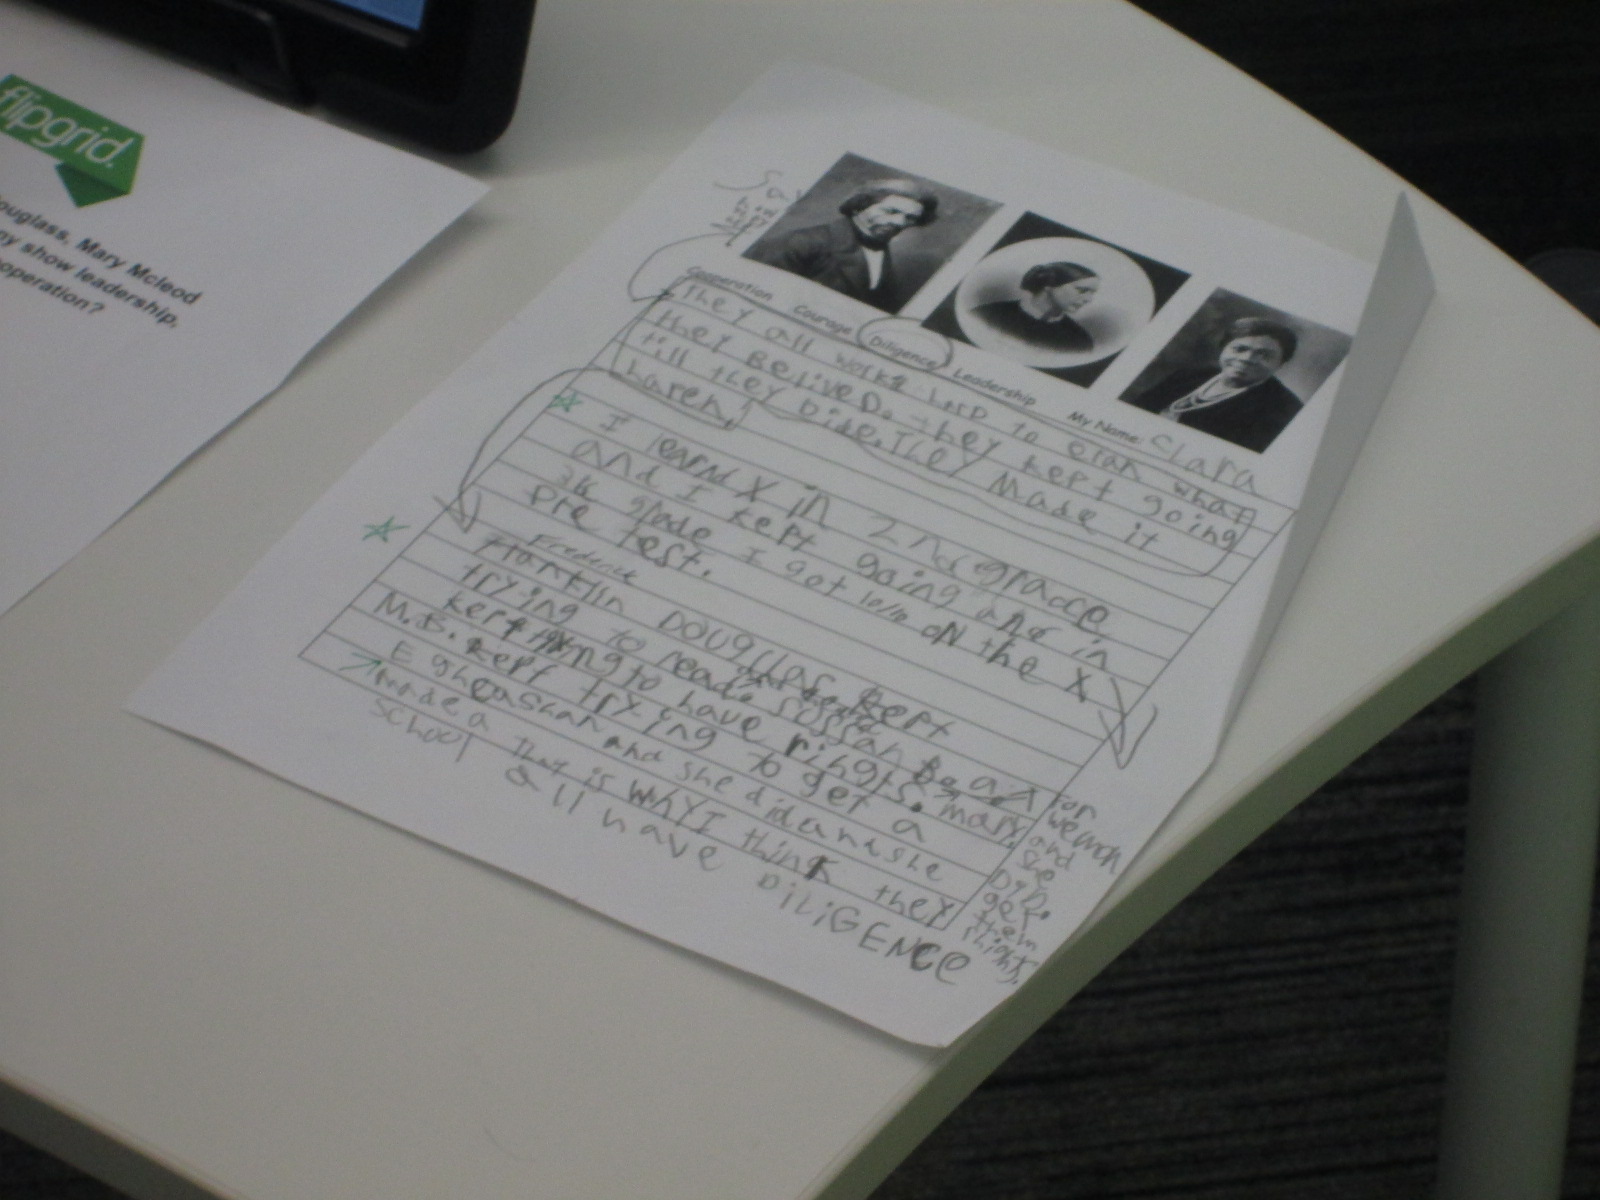 flipgrid.
ouglass, Mary Mcleod
ny show leadership,
operation?
Say
Cooperation Courage Diligence Leadership My Name: Clara
They all works harD to eran what
they BeliveD. they kept going
till they Dide. They Made it
haren,
I learnd X in 2nd grade
and I kept going and in
3k grade I got 10/10 oN the X
pre test.
Frederick
Franklin Douglas kept
trying to read
kept trying to have rights. mary
M.B. kept trying to get a
and she did and she
made a That is WhY I think they
School all have DiLiGENCe
for
wemon
and
She
DiD.
get
them
rhights.